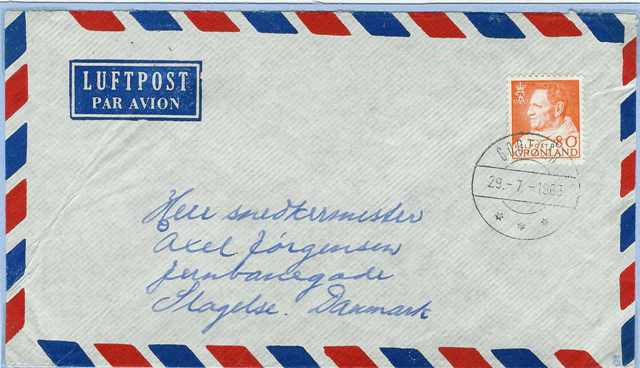 LUFTPOST
PAR AVION
80
GRØNLAND
29.-7.-1963
Herr snedkermester
Axel Jørgensen
Jernbanegade
Slagelse. Danmark